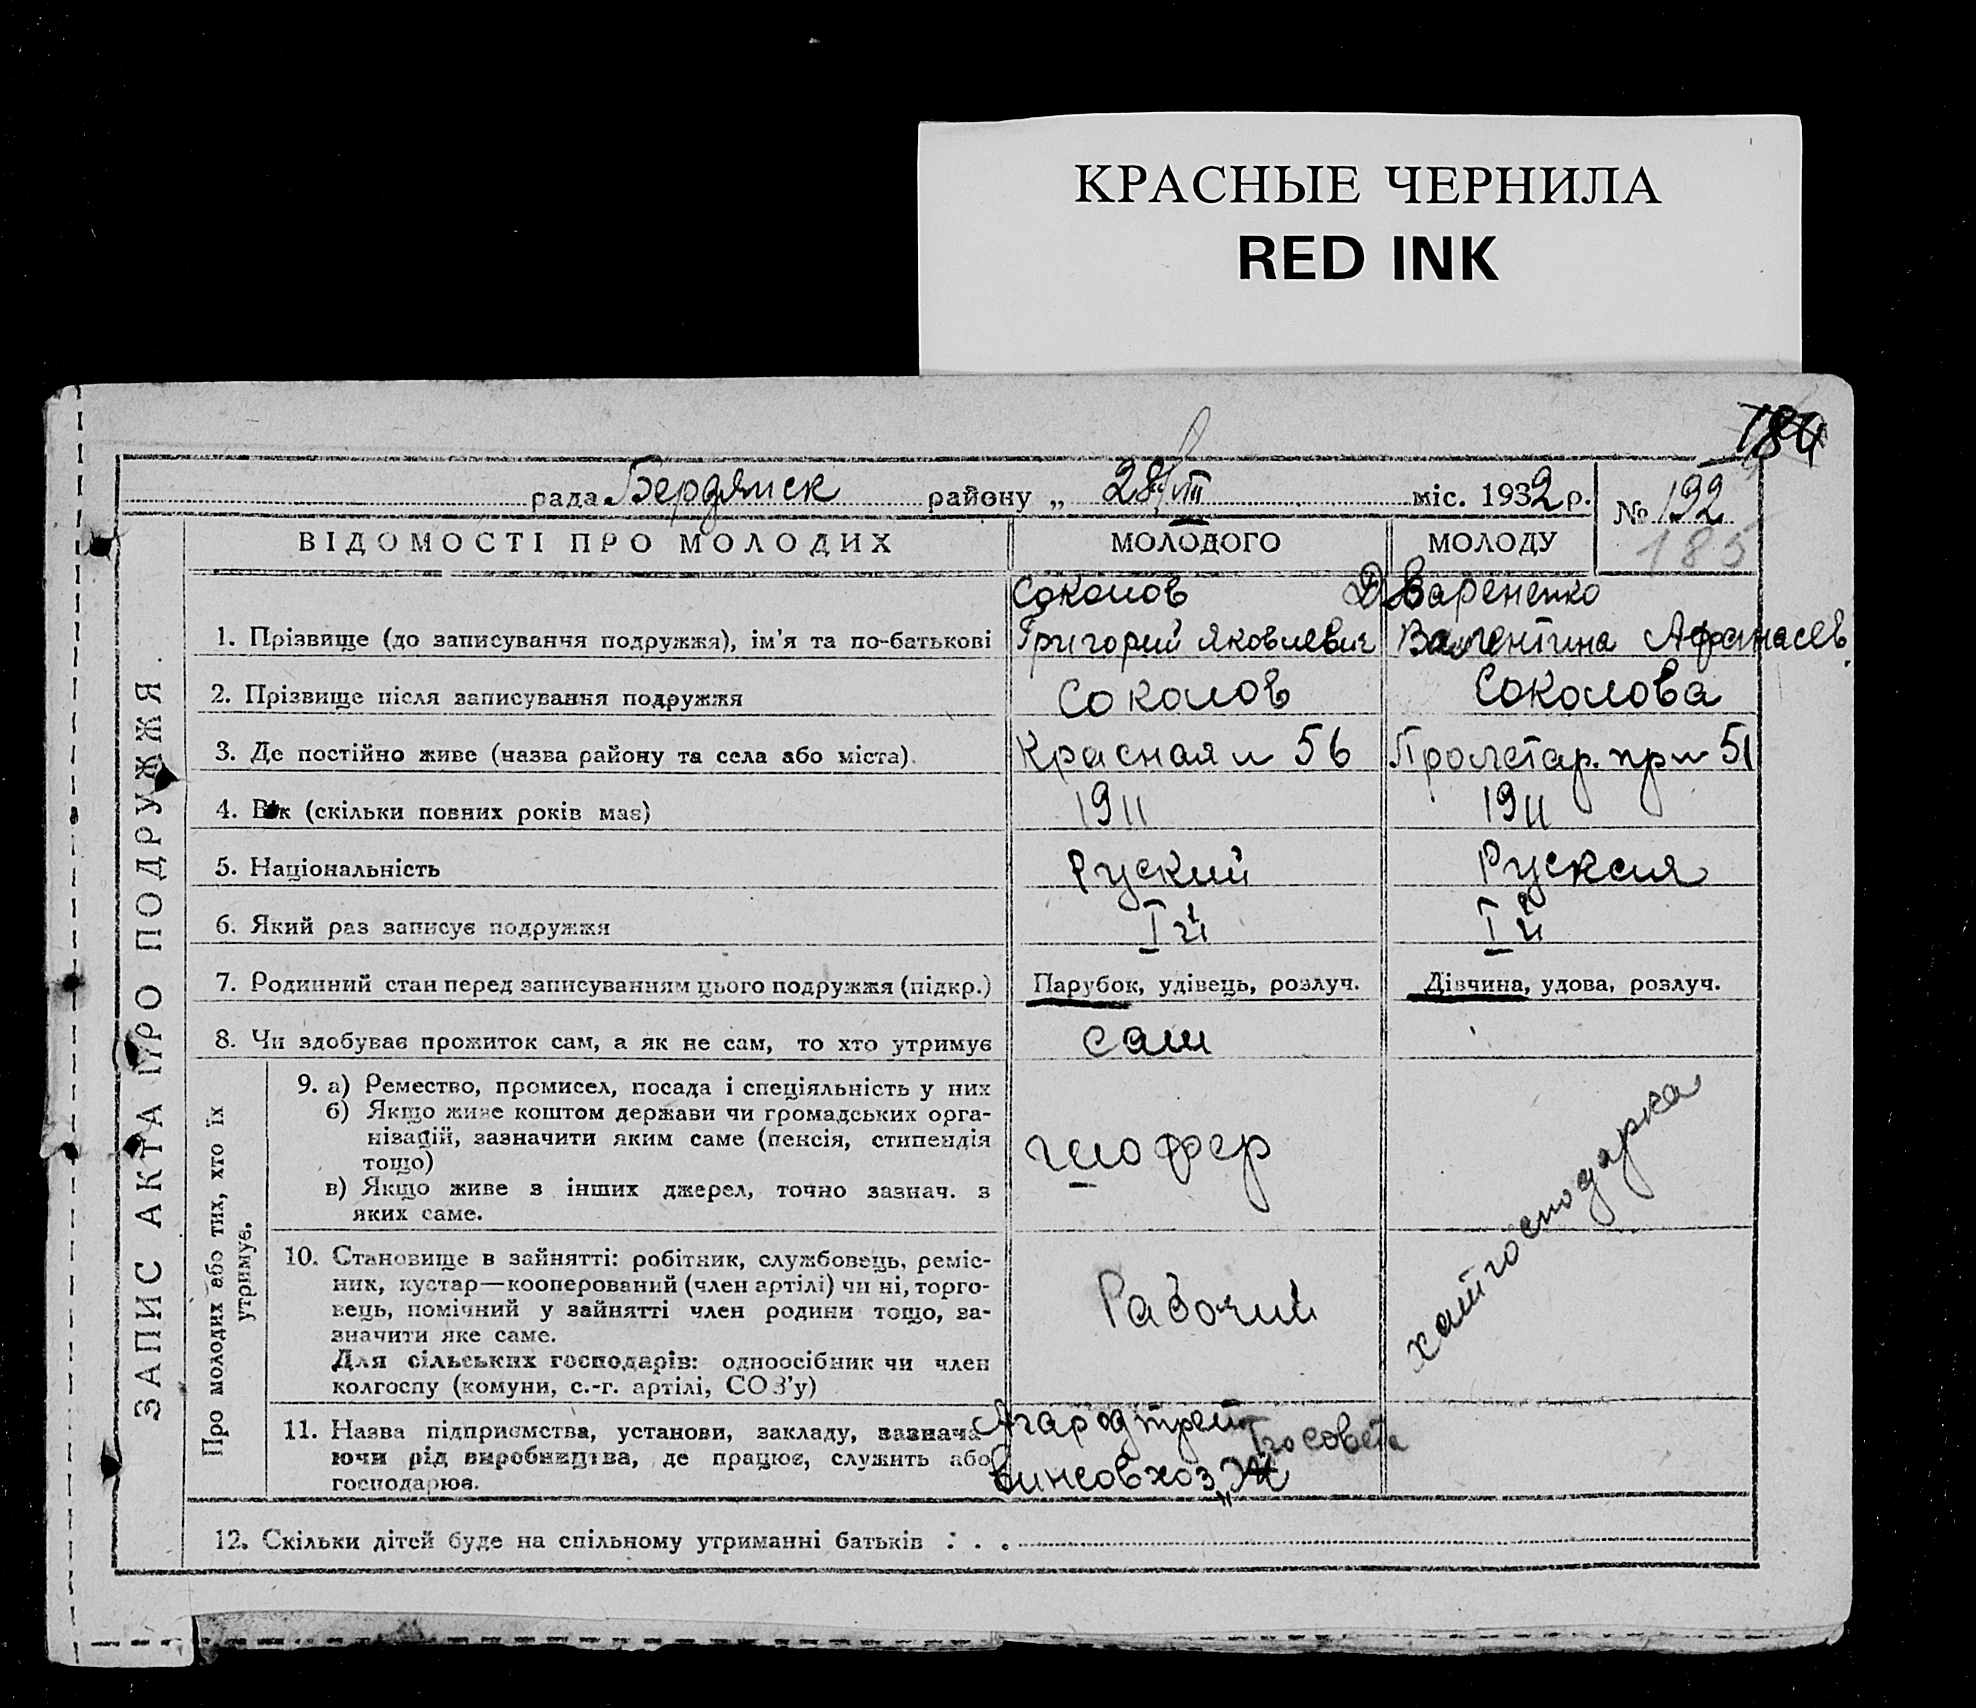 КРАСНЫЕ ЧЕРНИЛА
RED INK
184
рада Бердянск району „ 28/VIII міс. 1932 р. № 192
185
ВІДОМОСТІ ПРО МОЛОДИХ МОЛОДОГО МОЛОДУ
ЗАПИС АКТА ПРО ПОДРУЖЖЯ.
Соколов Вареченко
1. Прізвище (до записування подружжя), ім'я та по-батькові Григорий Яковлевич Валентина Афанасьев.
2. Прізвище після записування подружжя Соколов Соколова
3. Де постійно живе (назва району та села або міста). Красная 56 Пролетар. пр 51
4. Вік (скільки повних років має) 1911 1911
5. Національність Руский Руская
6. Який раз записує подружжя I й I й
7. Родинний стан перед записуванням цього подружжя (підкр.) Парубок, удівець, розлуч. Дівчина, удова, розлуч.
8. Чи здобуває прожиток сам, а як не сам, то хто утримує сам
Про молодих або тих, хто їх
утримує.
9. а) Ремество, промисел, посада і спеціяльність у них
б) Якщо живе коштом держави чи громадських орга-
нізацій, зазначити яким саме (пенсія, стипендія
тощо)
в) Якщо живе з інших джерел, точно зазнач. з
яких саме.
шофер
хатгосподарка
10. Становище в зайнятті: робітник, службовець, реміс-
ник, кустар—кооперований (член артілі) чи ні, торго-
вець, помічний у зайнятті член родини тощо, за-
значити яке саме.
Для сільських господарів: одноосібник чи член
колгоспу (комуни, с.-г. артілі, СОЗ'у)
Рабочий
11. Назва підприємства, установи, закладу, зазнача-
ючи рід виробництва, де працює, служить або
господарює.
совета
Винсовхоз
12. Скільки дітей буде на спільному утриманні батьків : . .